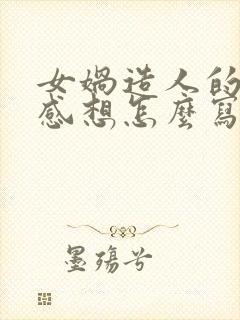 女媧造人的
感想怎麼寫
墨殤兮